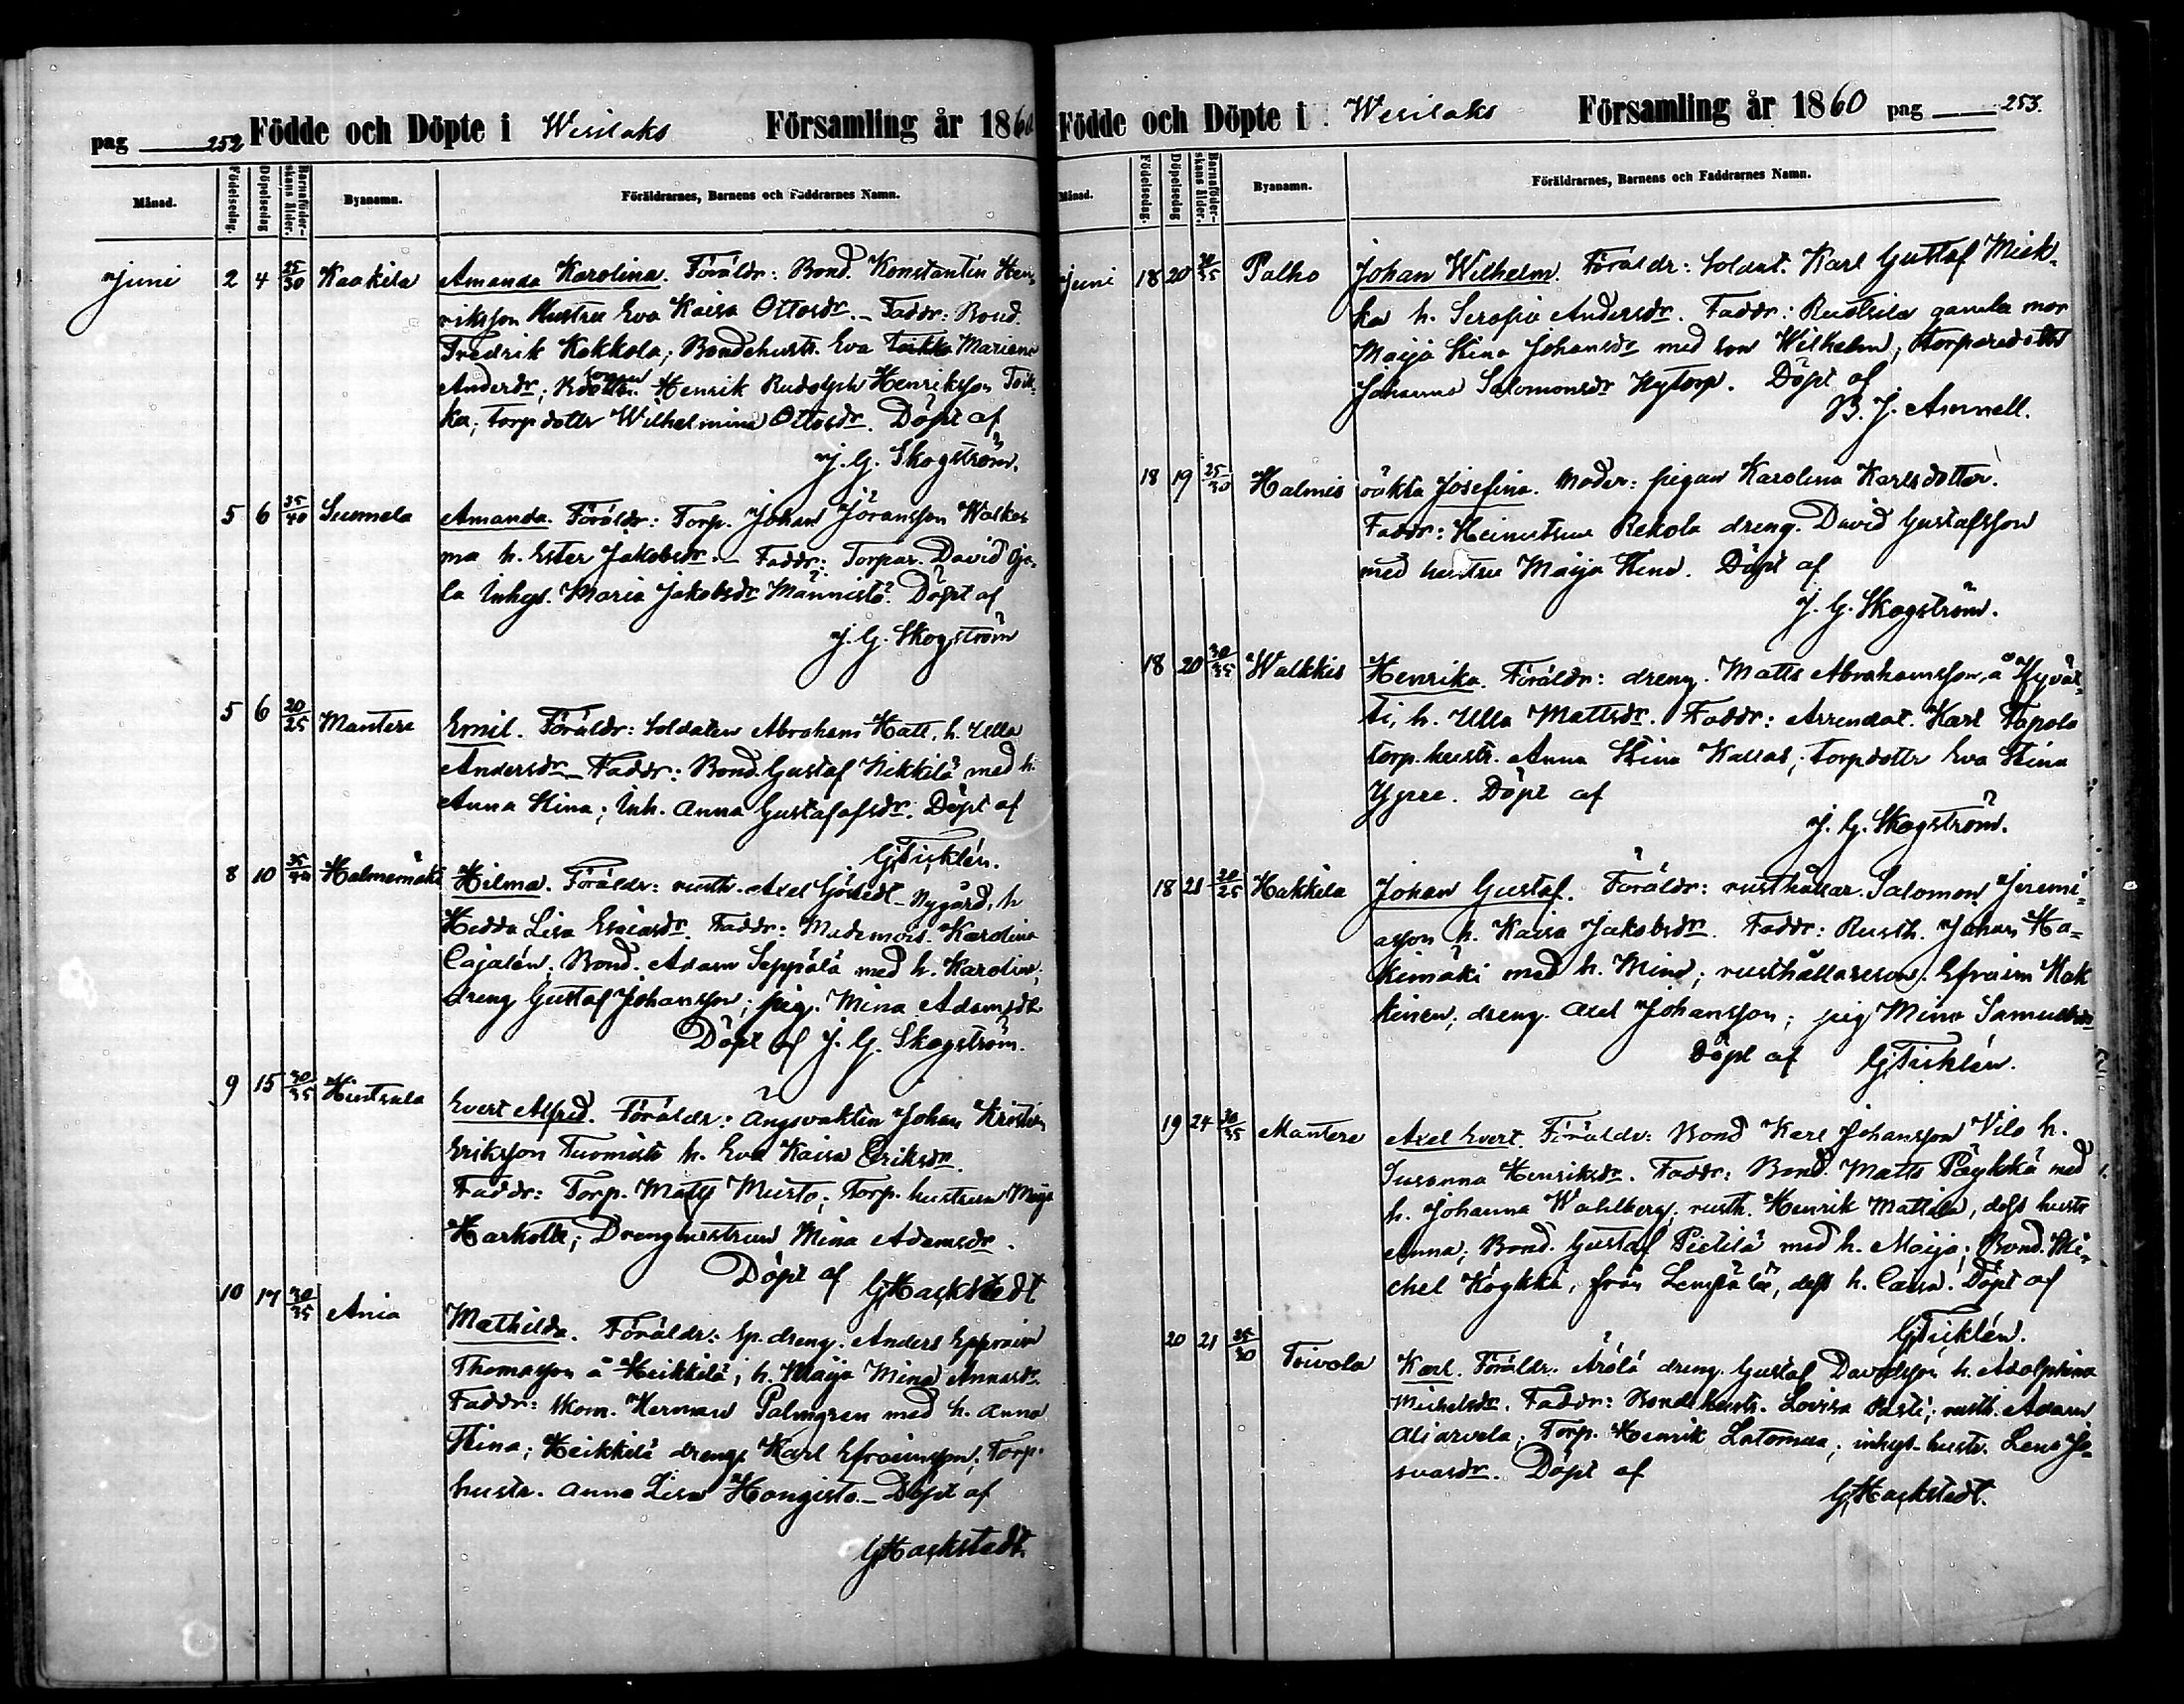 pag 252 Födde och Döpte i Wesilaks Församling år 1860
Månad. Födelsedag. Döpelsedag Barnaföder-skans ålder. Byanamn. Föräldrarnes, Barnens och Faddrarnes Namn.
Juni 2 4 25/30 Kaakila Amanda Karolina. Föräldr: Bond. Konstantin Hen-
riksson Hustru Eva Kaisa Ottosdr. – Faddr: Bond.
Fredrik Kokkola; Bondehustr. Eva Toikka Mariana
Andersdr; sonen Henrik Rudolph Henriksson Toik-
ka; Torpdottr Wilhelmina Ottosdr. Döpt af
J. G. Skogström.
5 6 35/40 Suomela Amanda. Föräldr: Torp. Johan Jöransson Walkea
ma h. Ester Jakobsdr. – Faddr: Torpar. David Oja-
la Inhys. Maria Jakobsdr Männistö. Döpt af
J. G. Skogström
5 6 20/25 Mantere Emil. Föräldr: Soldaten Abraham Hatt, h. Ulla
Andersdr – Faddr: Bond. Gustaf Nikkilä med h.
Anna Stina; Inh. Anna Gustafafsdr. Döpt af
G. Ticklén.
8 10 35/40 Halmemäki Hilma. Föräldr: rusth. Axel Nygård, h
Hedda Lisa Esaiasdr. Faddr: Mademois. Karolina
Cajalén; Bond. Adam Seppälä med h. Karolina;
dreng Gustaf Johansson; pig. Mina Adamsdr
Döpt af J. G. Skogström.
9 15 30/35 Hintsala Evert Alfred. Föräldr: Ängsvakten Johan Kristian
Eriksson Tuomisto h. Eva Kaisa Eriksdr.
Faddr: Torp. Matts Musto; Torp. hustrun Maja
Harkola; Dreng hustrun Mina Adamsdr.
Döpt af G. Hackstedt
10 17 30/35 Ania Mathilda. Föräldr: Sp. dreng. Anders Ephraim
Thomasson å Heikkilä; h. Maija Mina Annasdr.
Faddr: Skom. Herman Palmgren med h. Anna
Stina; Heikkilä dreng. Karl Efraimsson; Torp.
hustr. Anna Lisa Hongisto. – Döpt af
G. Hackstedt.
Födde och Döpte i Wesilaks Församling år 1860 pag 253.
Månad. Födelsedag. Döpelsedag Barnaföder-skans ålder. Byanamn. Föräldrarnes, Barnens och Faddrarnes Namn.
Juni 18 20 30/35 Palho Johan Wilhelm. Föräldr: Soldat. Karl Gustaf Mick-
ka h. Serafia Andersdr. Faddr: gamla mor
Maija Stina Johansdr med son Wilhelm; torparedottr
Johanna Salomonsdr Nytorp. Döpt af
B. J. Amnell.
18 19 25/30 Halmis oäkta Josefina. Moder: pigan Karolina Karlsdotter.
Faddr: Rekola dreng. David Gustafsson
med hustru Maija Stina. Döpt af
J. G. Skogström.
18 20 30/35 Walkkis Henrika. Föräldr: dreng. Matts Abrahamsson, å Hyvät-
ti, h. Ulla Mattsdr. Faddr: Arrendat. Karl Tapola
torp. hustr. Anna Stina Kallas; torpdottr Eva Stina
Yjree. Döpt af
J. G. Skogström.
18 21 20/25 Hakkila Johan Gustaf. Föräldr: rusthållar. Salomon Jeremi-
asson h. Kaisa Jakobsdr. Faddr: Rusth. Johan Ha-
kimäki med h. Mina; rusthållareson. Efraim Hak
kinen; dreng. Axel Johansson; pig Mina Samuelsdr
Döpt af G. Ticklén.
19 24 30/35 Mantere Axel Evert. Föräldr: Bond Karl Johansson Vilo h.
Susanna Henriksdr. Faddr: Bond. Matts Pöykkä med
h. Johanna Wahlberg; rusth. Henrik Mattila, dess hustr
Anna; Bond. Gustaf Pietilä med h. Maija; Bond. Mi-
chel Kögkkä, från Lempälä, dess h. Caisa. Döpt af
G. Ticklén.
20 21 25/30 Toivola Karl. Föräldr. Arölä dreng. Gustaf Davidsson, h. Adolphina
Michelsdr. Faddr: Bondehustr. Lovisa Pasti; rusth. Adam
Aliarvela; Torp. Henrik Latomaa; inhys-hustr. Lena Jo-
suasdr. Döpt af
G. Hackstedt.